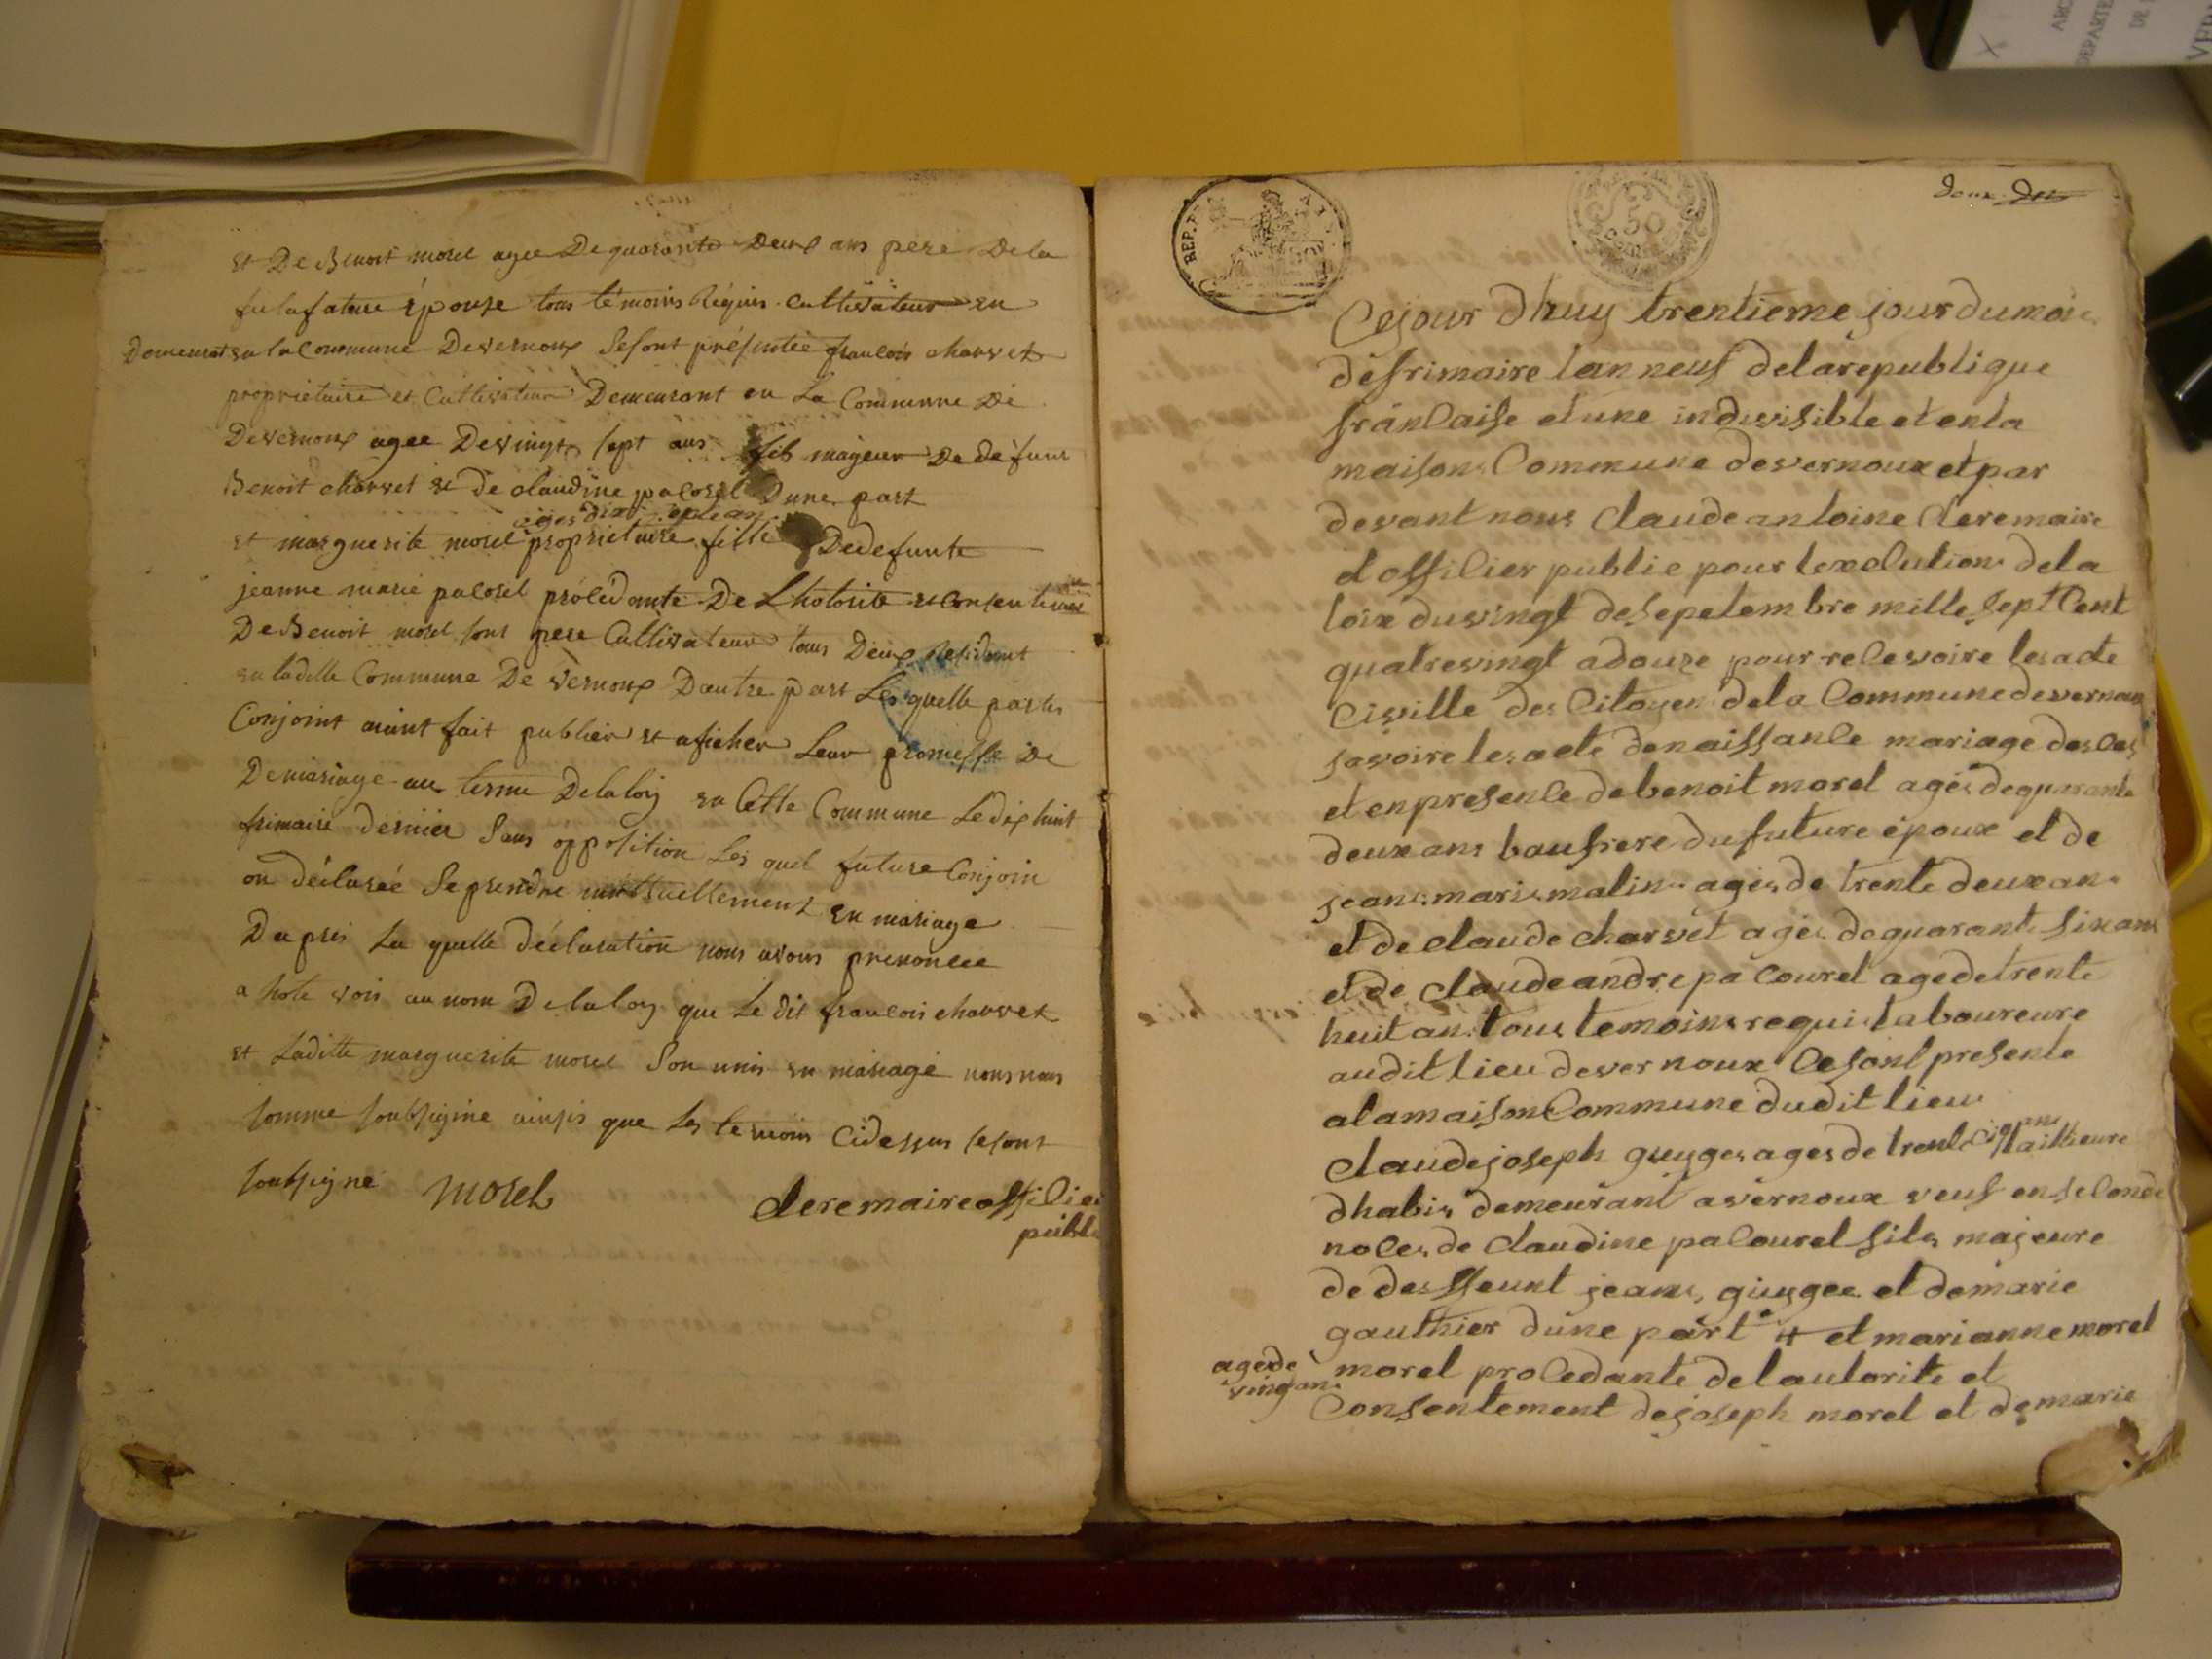 et De Benoit morel agee De quarante Deux ans pere De la
fulafature épouse tous témoins Réquis cultivateur en
Demeurat en la Commune De vernoux Se sont présentée francois charvet
propriétaire et Cultivateur Demeurant en La Commune De
De vernoux agee De vingt sept ans fils majeur De défunt
Benoit charvet et De claudine pacorel Dune part
agés dix septans
et marguerite morel propriétaire fille De defunte
jeanne marie pacorel procédante De Lhotorite et Consentement
De Benoit morel sont pere Cultivateur tous Deux Residant
en ladite Commune De vernoux Dautre part Les quelle partes
Conjoint aiant fait publier et aficher Leur promesse De
De mariage au terme De la loy en Cette Commune Le dixhuit
frimaire dernier Sans opposition Les quel future Conjoin
on déclareé Se prendre mutuellement en mariage
Da pres La quelle déclaration nous avons prenoncee
a hote vois au nom De la loy que Le dit francois charvet
et Laditte marguerite morel Son unis en mariage nous nous
somme soubsigine ainsis que Les temoin Cidessus se sont
soubsigne morel clere maire offilier
publi
REP.
50
deux
Cejour dhuy trentieme jour du moi
de frimaire lan neuf de la republique
francaise et une indivisible et en la
maison Commune de vernoux et par
devant nous claude antoine clere maire
et offilier publie pour lexelution de la
loix du vingt de sepetembre mille sept Cent
quatrevingt adouze pour relevoire les acte
Civille des Citoyen de la Commune de vernou
savoire les acte de naissance mariage desces
et en presence de benoit morel agés de quarante
deux ans baufrere du future époux et de
jean marie malin agés de trente deux an
et de claude charvet agés de quarante six ans
et de claude andre pacourel age de trente
heuit an tous temoins requis laboureure
audit lieu de vernoux Ce sont presente
a la maison Commune dudit lieu
claude joseph guyges ages de trente cinq ans tailleure
dhabis demeurant a vernoux veuf en seconde
noces de claudine pacourel fils majeure
de deffeunt jean guygee et de marie
gauthier dune part et marianne morel
age de vingt an
morel procedante de lautorite et
Consentement de joseph morel et de marie
ARC
DEPARTE
DE